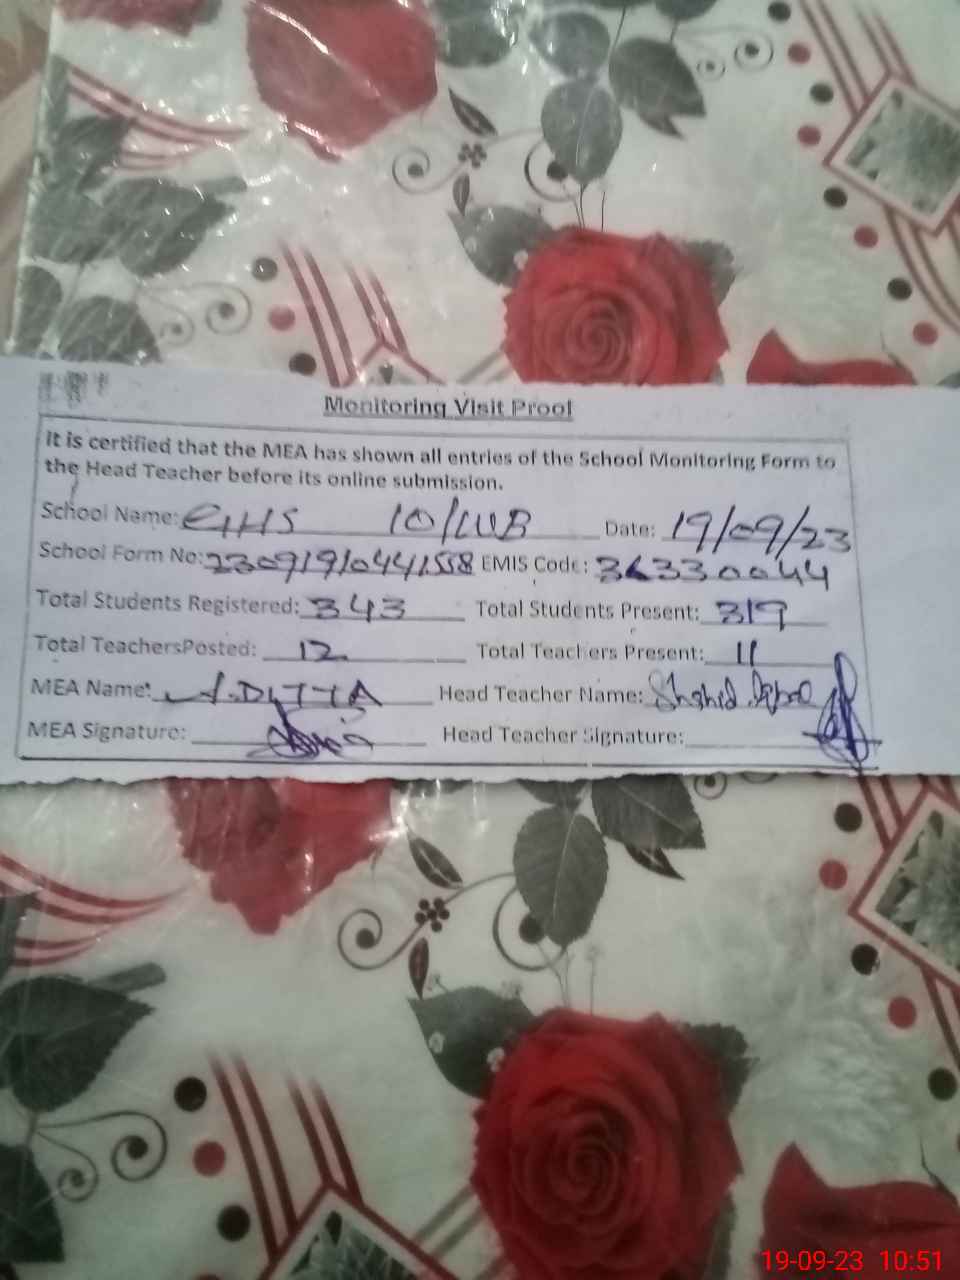 Monitoring Visit Proof
It is certified that the MEA has shown all entries of the School Monitoring Form to
the Head Teacher before its online submission.
School Name: GHS 10/WB Date: 19/09/23
School Form No: 23091910441558 EMIS Code: 36330044
Total Students Registered: 343 Total Students Present: 319
Total TeachersPosted: 12 Total Teachers Present: 11
MEA Name: A.DITTA Head Teacher Name: Shahid Iqbal
MEA Signature: Head Teacher Signature:
19-09-23 10:51